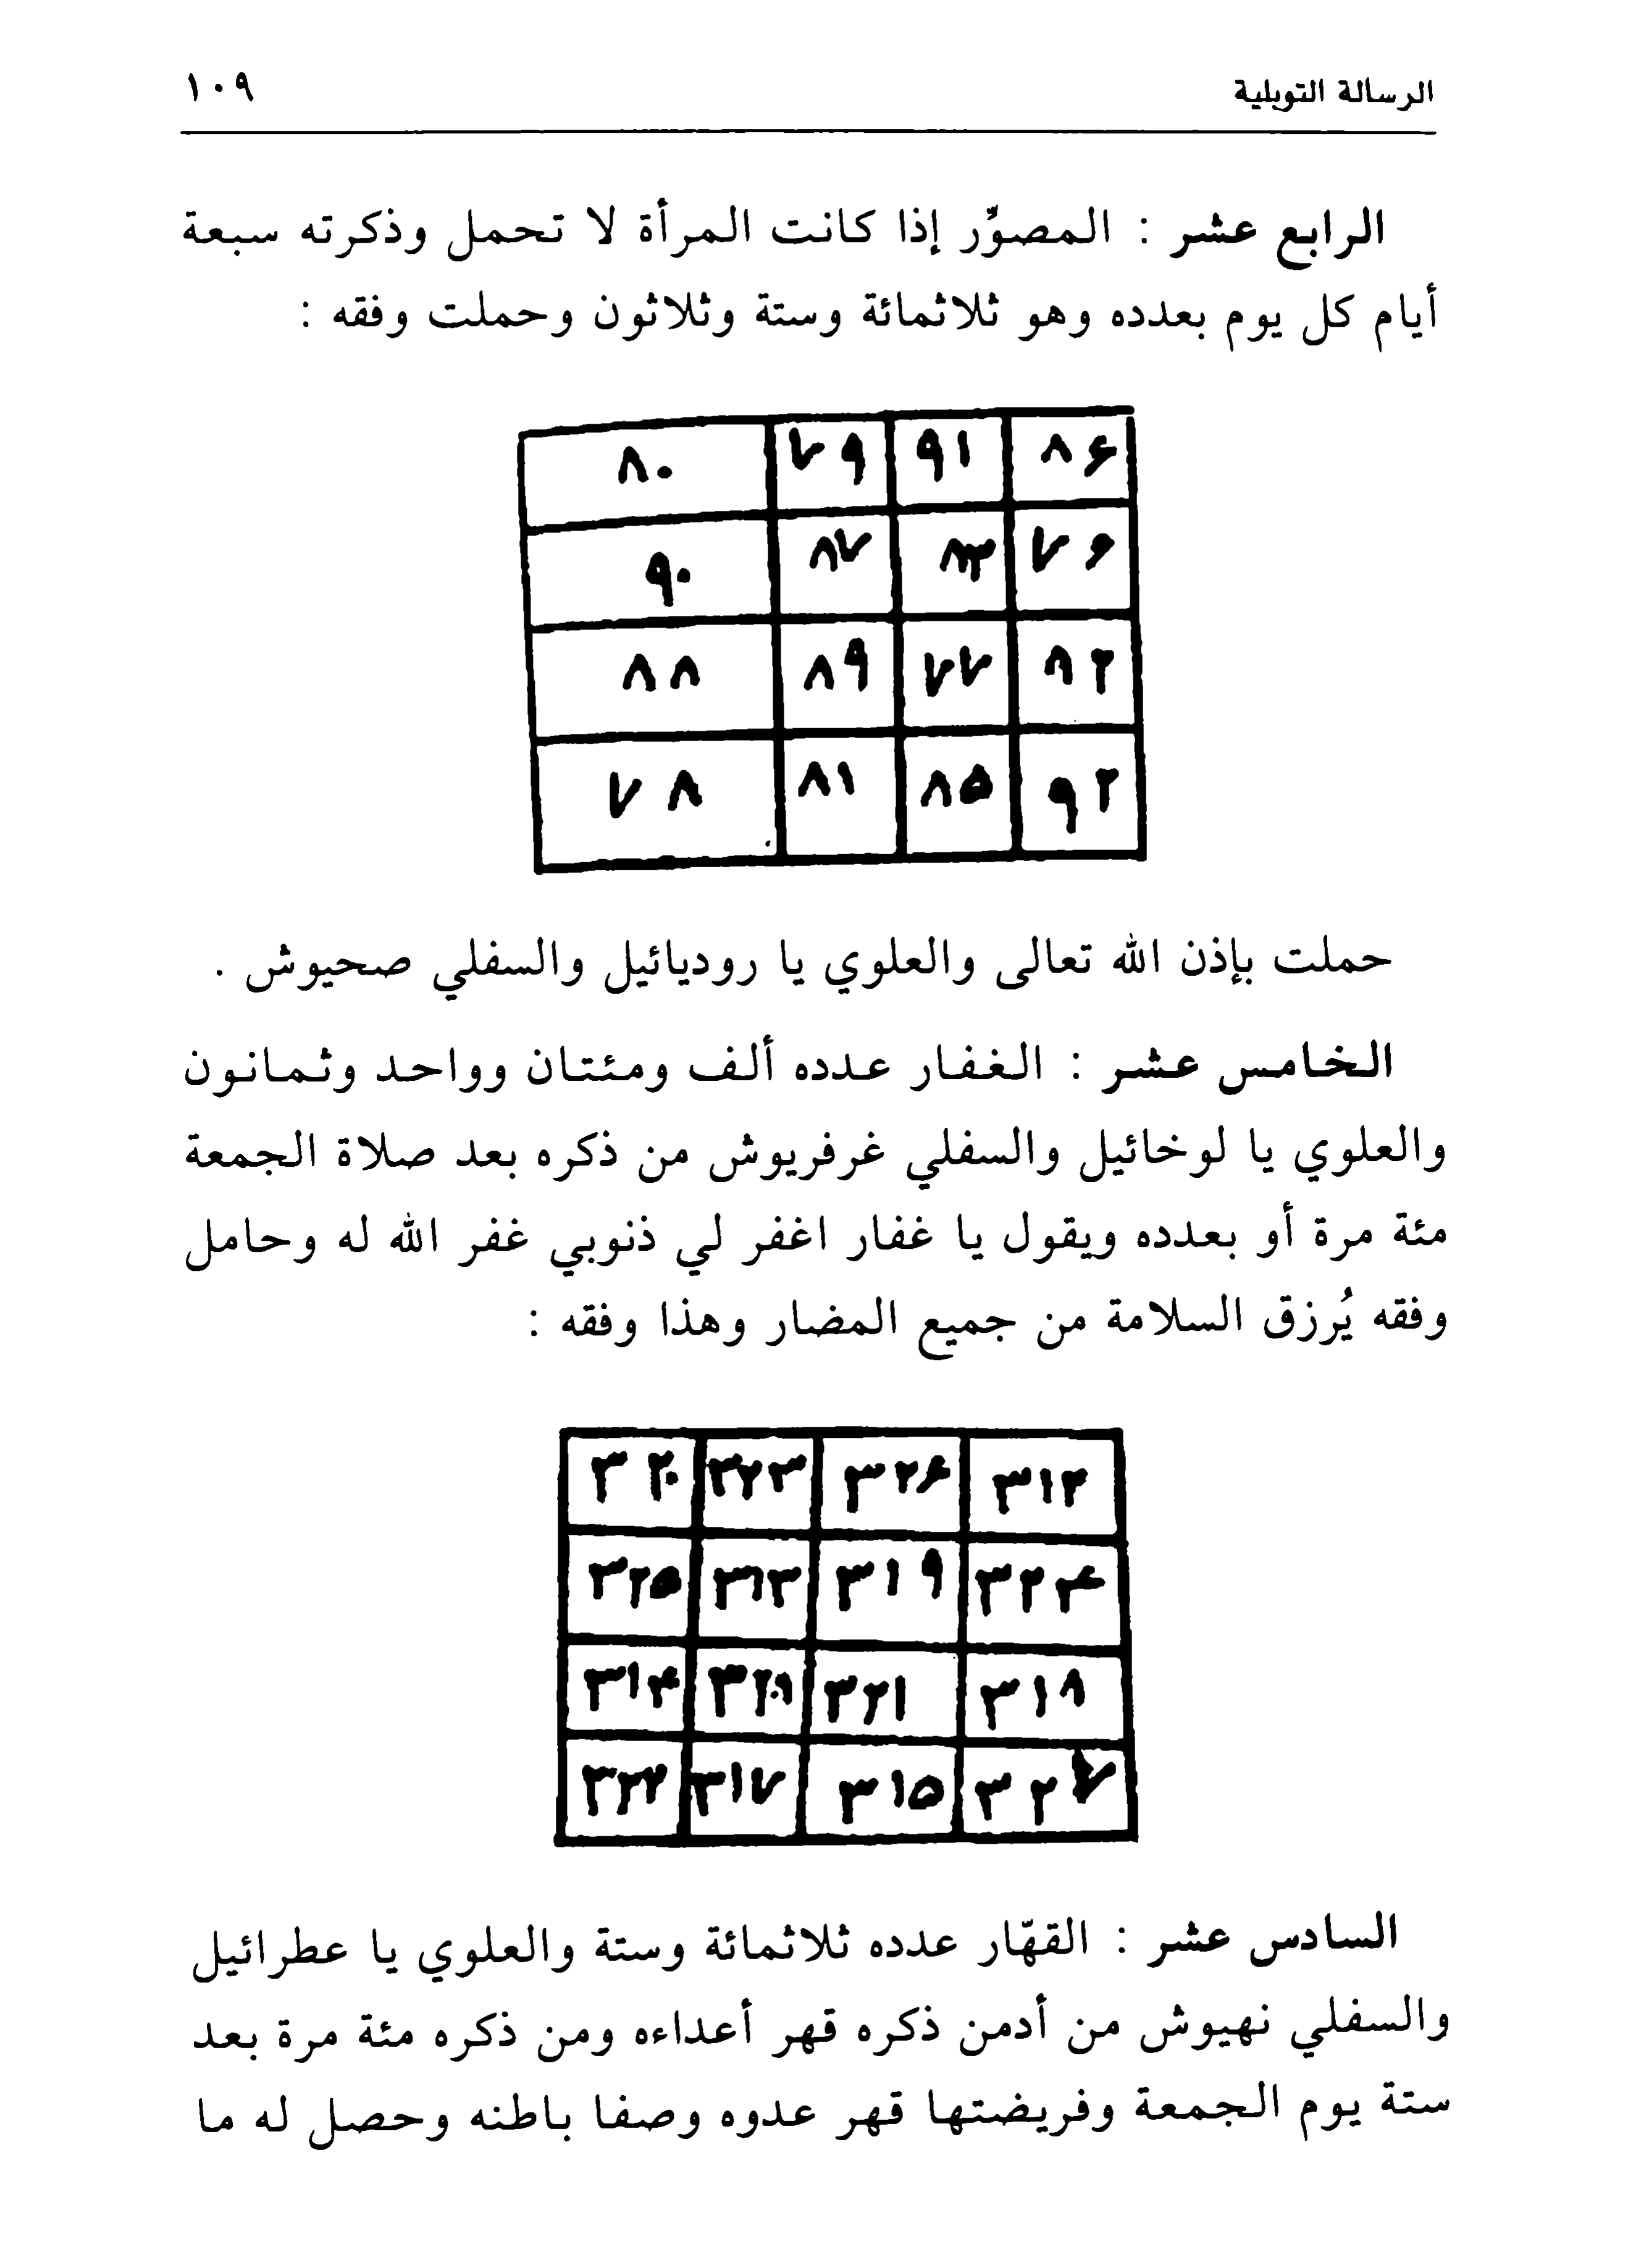 الرسالة التوبلية ١٠٩
الرابع عشر : المصوِّر إذا كانت المرأة لا تحمل وذكرته سبعة
أيام كل يوم بعدده وهو ثلاثمائة وستة وثلاثون وحملت وفقه :
٨٠ ٧٩ ٩١ ٨۶
٩٠ ٨٧ ٨٣ ٧۶
٨٨ ٨٩ ٧٧ ٨٢
٧٨ ٨١ ٨۵ ٩٢
حملت بإذن الله تعالى والعلوي يا روديائيل والسفلي صحيوش .
الخامس عشر : الغفار عدده ألف ومئتان وواحد وثمانون
والعلوي يا لوخائيل والسفلي غرفريوش من ذكره بعد صلاة الجمعة
مئة مرة أو بعدده ويقول يا غفار اغفر لي ذنوبي غفر الله له وحامل
وفقه يُرزق السلامة من جميع المضار وهذا وفقه :
٣٢٠ ٣٢٣ ٣٢۶ ٣١٢
٣٢۵ ٣١٣ ٣١٩ ٣٢۴
٣١۴ ٣٢١ ٣١٨
٣٢٢ ٣١٧ ٣١۵ ٣٢٧
السادس عشر : القهّار عدده ثلاثمائة وستة والعلوي يا عطرائيل
والسفلي نهيوش من أدمن ذكره قهر أعداءه ومن ذكره مئة مرة بعد
ستة يوم الجمعة وفريضتها قهر عدوه وصفا باطنه وحصل له ما